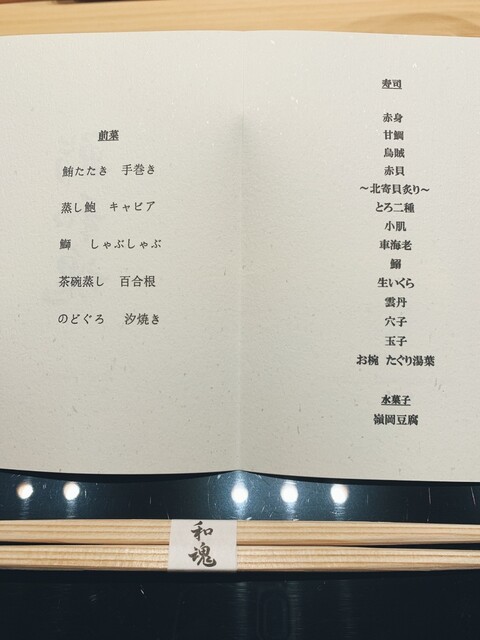 前菜
鮪たたき 手巻き
蒸し鮑 キャビア
鰤 しゃぶしゃぶ
茶碗蒸し 百合根
のどぐろ 汐焼き
寿司
赤身
甘鯛
烏賊
赤貝
～北寄貝炙り～
とろ二種
小肌
車海老
鰯
生いくら
雲丹
穴子
玉子
お椀 たぐり湯葉
水菓子
嶺岡豆腐
和魂